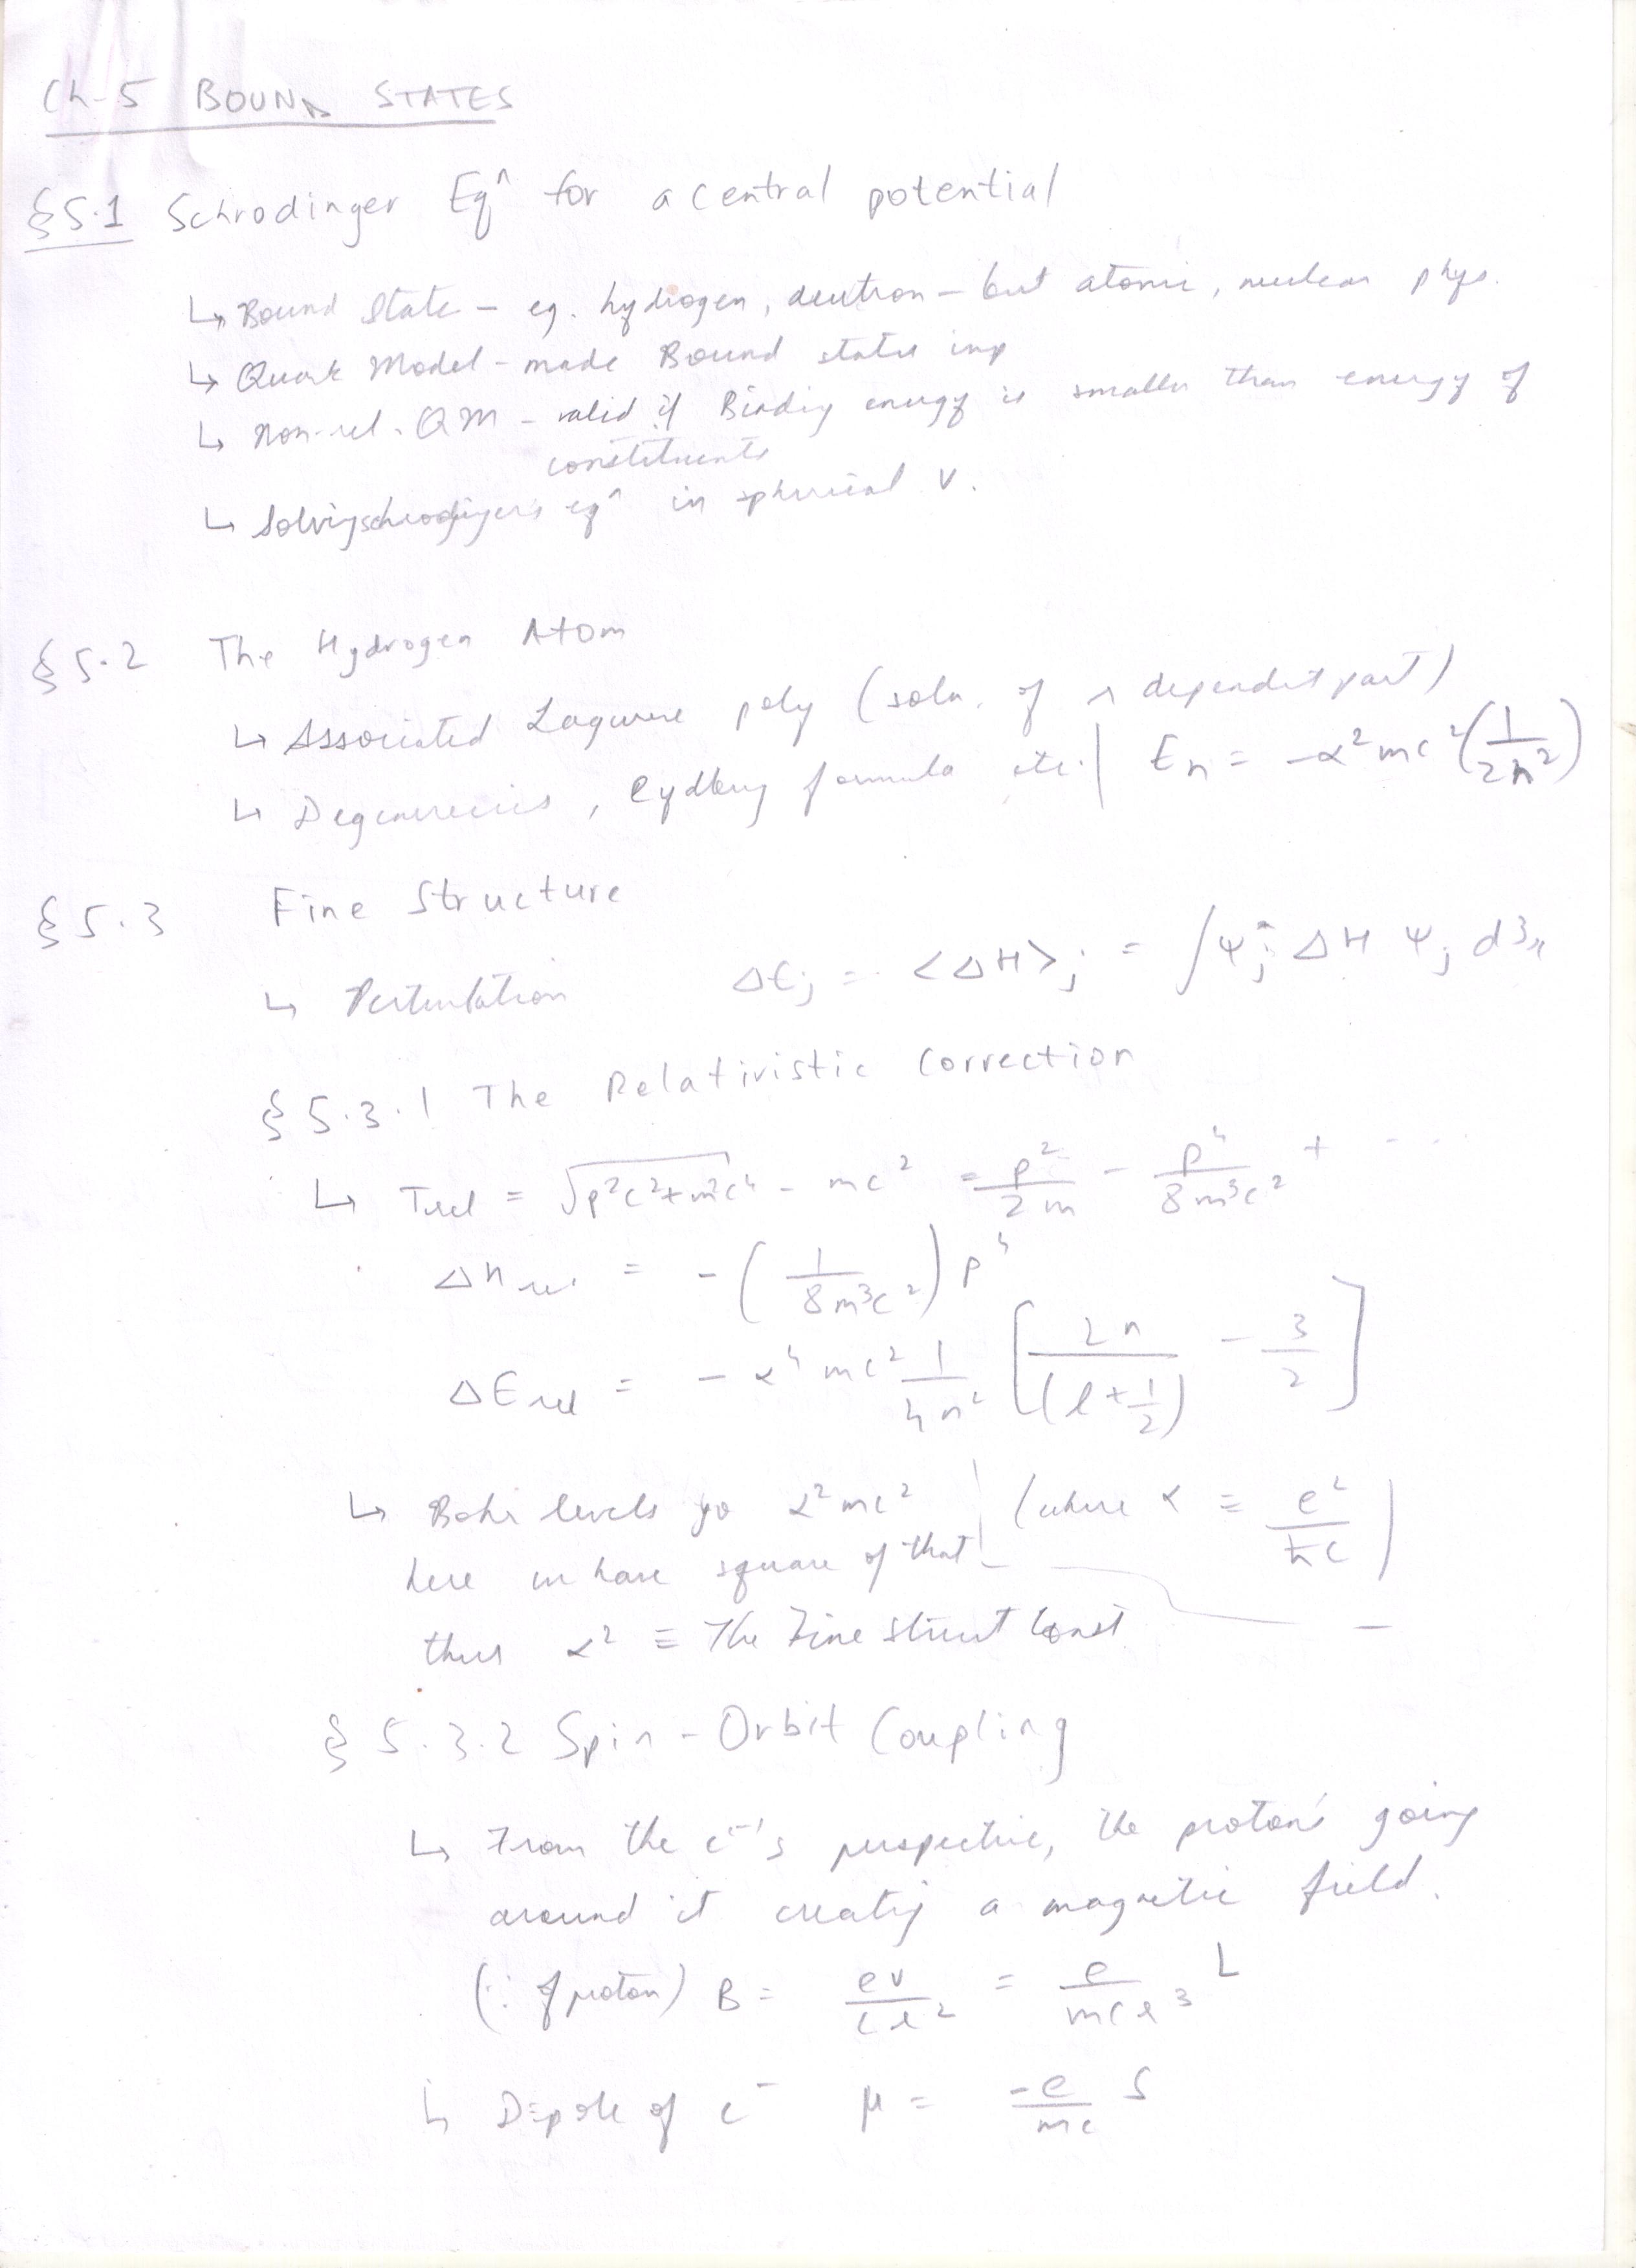 Ch-5 BOUND STATES
§5.1 Schrodinger Eqⁿ for a central potential
↳ Bound State - eg. hydrogen, deutron - but atomic, nuclear phys.
↳ Quark Model - made Bound states imp
↳ Non-rel. QM - valid if Binding energy is smaller than energy of
constituents
↳ Solving schrodinger's eqⁿ in spherical V.
§5.2 The Hydrogen Atom
↳ Associated Laguerre poly (soln. of r dependent part)
↳ Degeneracies, Rydberg formula etc. | Eₙ = -α²mc²(1/2n²)
§5.3 Fine Structure
↳ Perturbation ΔEⱼ = <ΔH>ⱼ = ∫ψⱼ* ΔH ψⱼ d³r
§5.3.1 The Relativistic Correction
↳ Trel = √(p²c²+m²c⁴) - mc² = p²/2m - p⁴/8m³c² + ...
ΔHrel = -(1/8m³c²) p⁴
ΔErel = -α⁴mc² 1/4n² [2n/(l+1/2) - 3/2]
↳ Bohr levels go α²mc² | (where α = e²/ħc)
here we have square of that
thus α² ≡ The Fine Struct Const
§5.3.2 Spin-Orbit Coupling
↳ From the e⁻'s perspective, the proton's going
around it creating a magnetic field.
(∵ of proton) B = ev/cr² = e/mcr³ L
↳ Dipole of e⁻ μ = -e/mc S